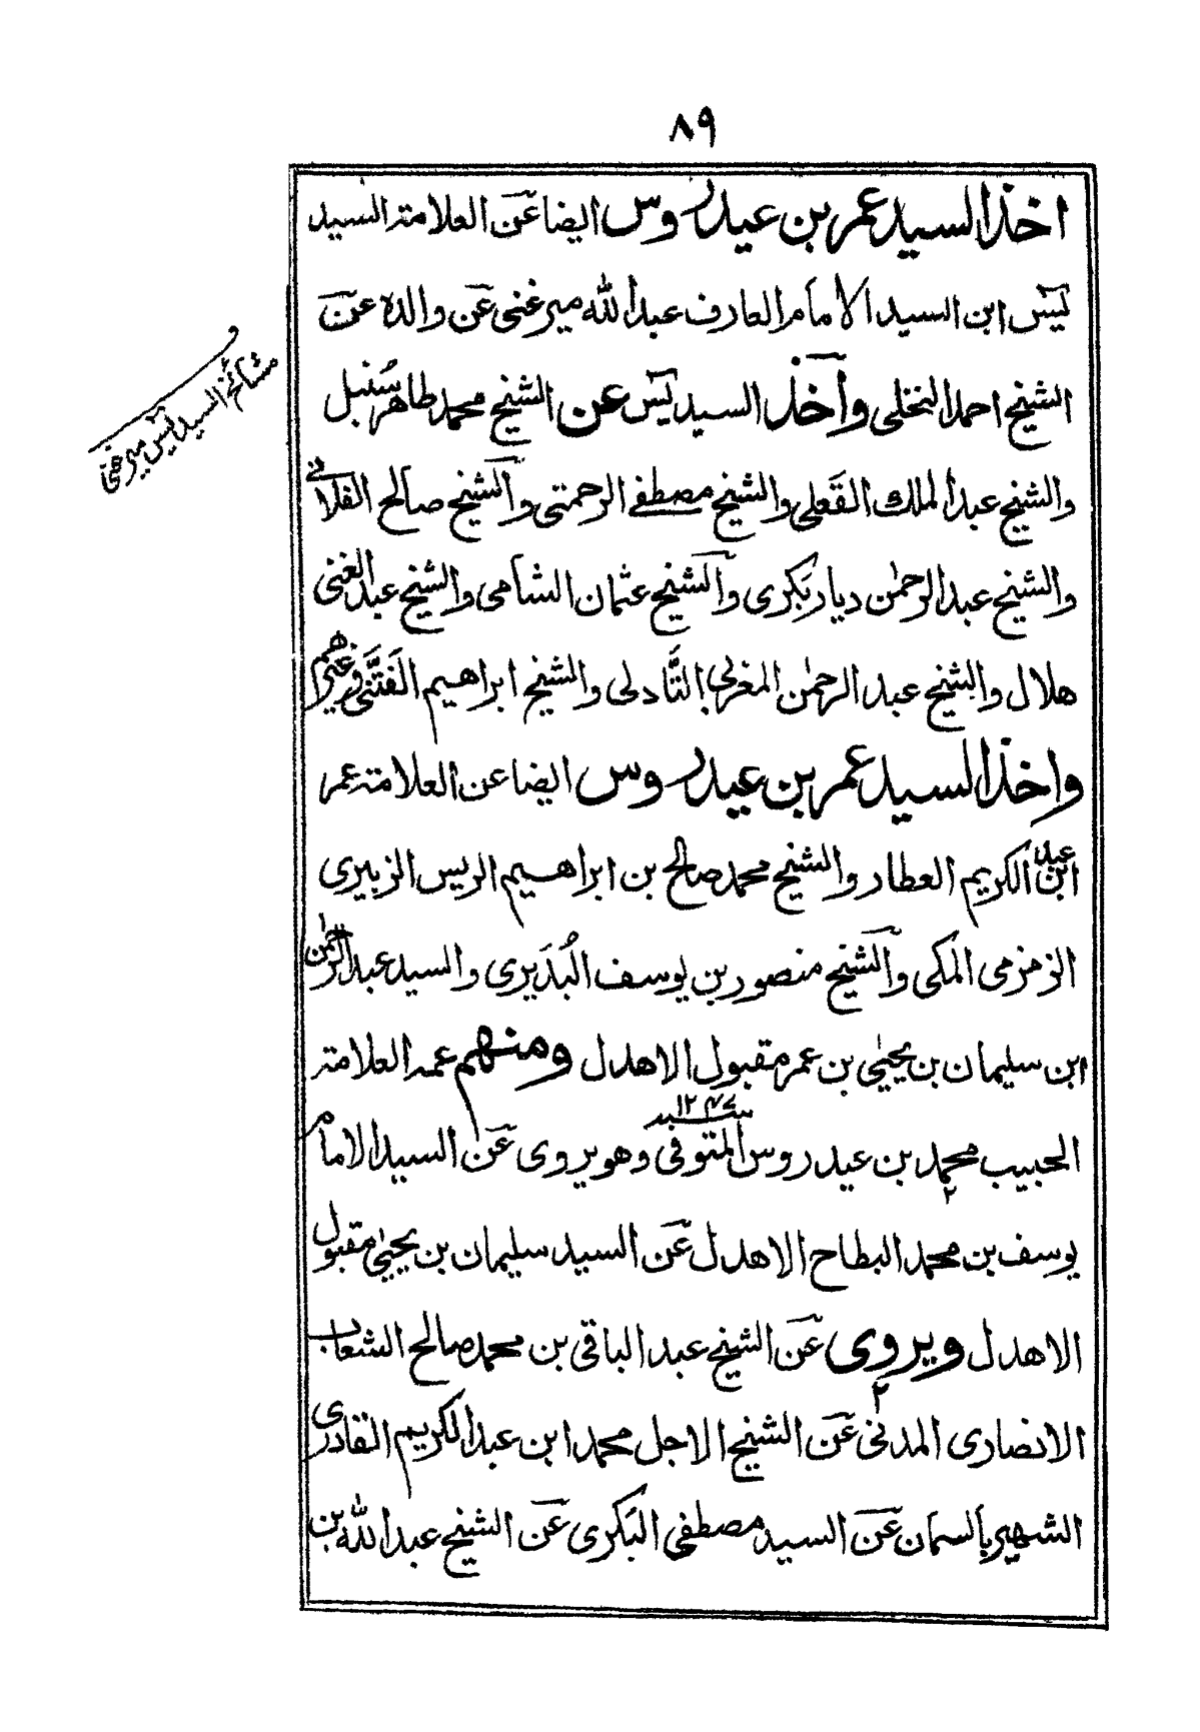 ٨٩
اخذ السيد عمر بن عيدروس ايضا عن العلامة السيد
يٰسٓ ابن السيد الامام العارف عبد الله ميرغنى عن والده عن
الشيخ احمد النخلى وآخذ السيد يٰسٓ عن الشيخ محمد طاهر سُنبل
والشيخ عبد الملك القَعلى والشيخ مصطفى الرحمتى والشيخ صالح الفلانى
والشيخ عبد الرحمٰن دياربَكرى والشيخ عثمان الشامى والشيخ عبد الغنى
هلال والشيخ عبد الرحمٰن المغربى التَّادلى والشيخ ابراهيم الفَتَّنى وغيرهم
واخذ السيد عمر بن عيدروس ايضا عن العلامة عمر
ابن عبد الكريم العطار والشيخ محمد صالح بن ابراهيم الريس الزبيرى
الزمزمى المكى والشيخ منصور بن يوسف البُدَيرى والسيد عبد الرحمٰن
ابن سليمان بن يحيٰى بن عمر مقبول الاهدل ومنهم عمه العلامة
الحبيب محمد بن عيدروس المتوفى سنة ١٢٤٧ وهو يروى عن السيد الامام
يوسف بن محمد البطاح الاهدل عن السيد سليمان بن يحيٰى مقبول
الاهدل ويروى عن الشيخ عبد الباقى بن محمد صالح الشعاب
الانصارى المدنى عن الشيخ الاجل محمد ابن عبد الكريم القادرى
الشهير بالسمان عن السيد مصطفى البَكرى عن الشيخ عبد الله بن
و
مشائخ السيد يٰسٓ ميرغنى